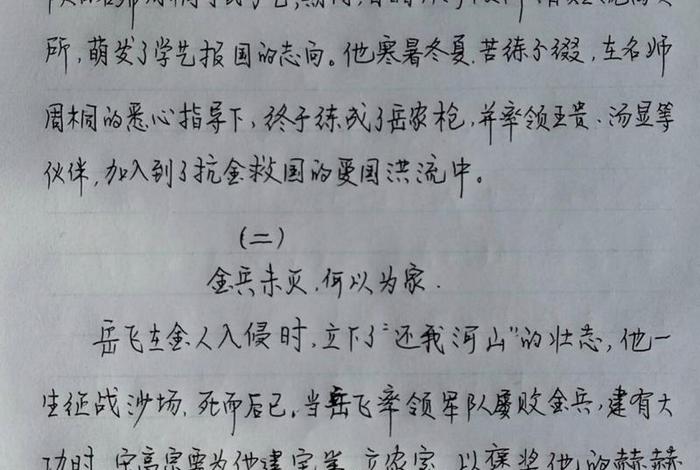 所,萌发了学艺报国的志向。他寒暑冬夏,苦练不缀,在名师
周桐的悉心指导下,终于练成了岳家枪,并率领王贵、汤显等
伙伴,加入到了抗金救国的爱国洪流中。
(二)
金兵未灭,何以为家.
岳飞在金人入侵时,立下了“还我河山”的壮志,他一
生征战沙场,死而后已。当岳飞率领军队屡败金兵,建有大
功时,宋高宗要为他建宅 立家室,以褒奖他的赫赫